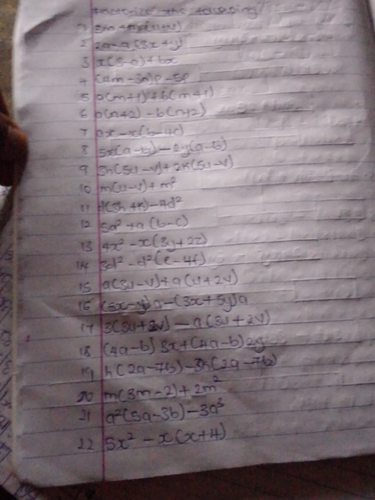 the following
1 2m + m(u+v)
2 2a-a(3x+y)
3 x(3-a)+bx
4 (4m-3n)p-5p
5 a(m+1)+b(m+1)
6 a(n+2)-b(n+2)
7 ax-x(b-4c)
8 5x(a-b)-2y(a-b)
9 3h(5u-v)+2k(5u-v)
10 m(u-v)+m²
11 d(3h+k)-4d²
12 5a²+a(b-c)
13 4x²-x(3y+2z)
14 3d²-d²(e-4f)
15 a(3u-v)+a(u+2v)
16 (5x-y)a-(3x+5y)a
17 3(3u+2v)-a(3u+2v)
18 (4a-b)3x+(4a-b)2y
19 h(2a-7b)-3k(2a-7b)
20 m(3m-2)+2m²
21 a²(5a-3b)-3a³
22 5x²-x(x+4)